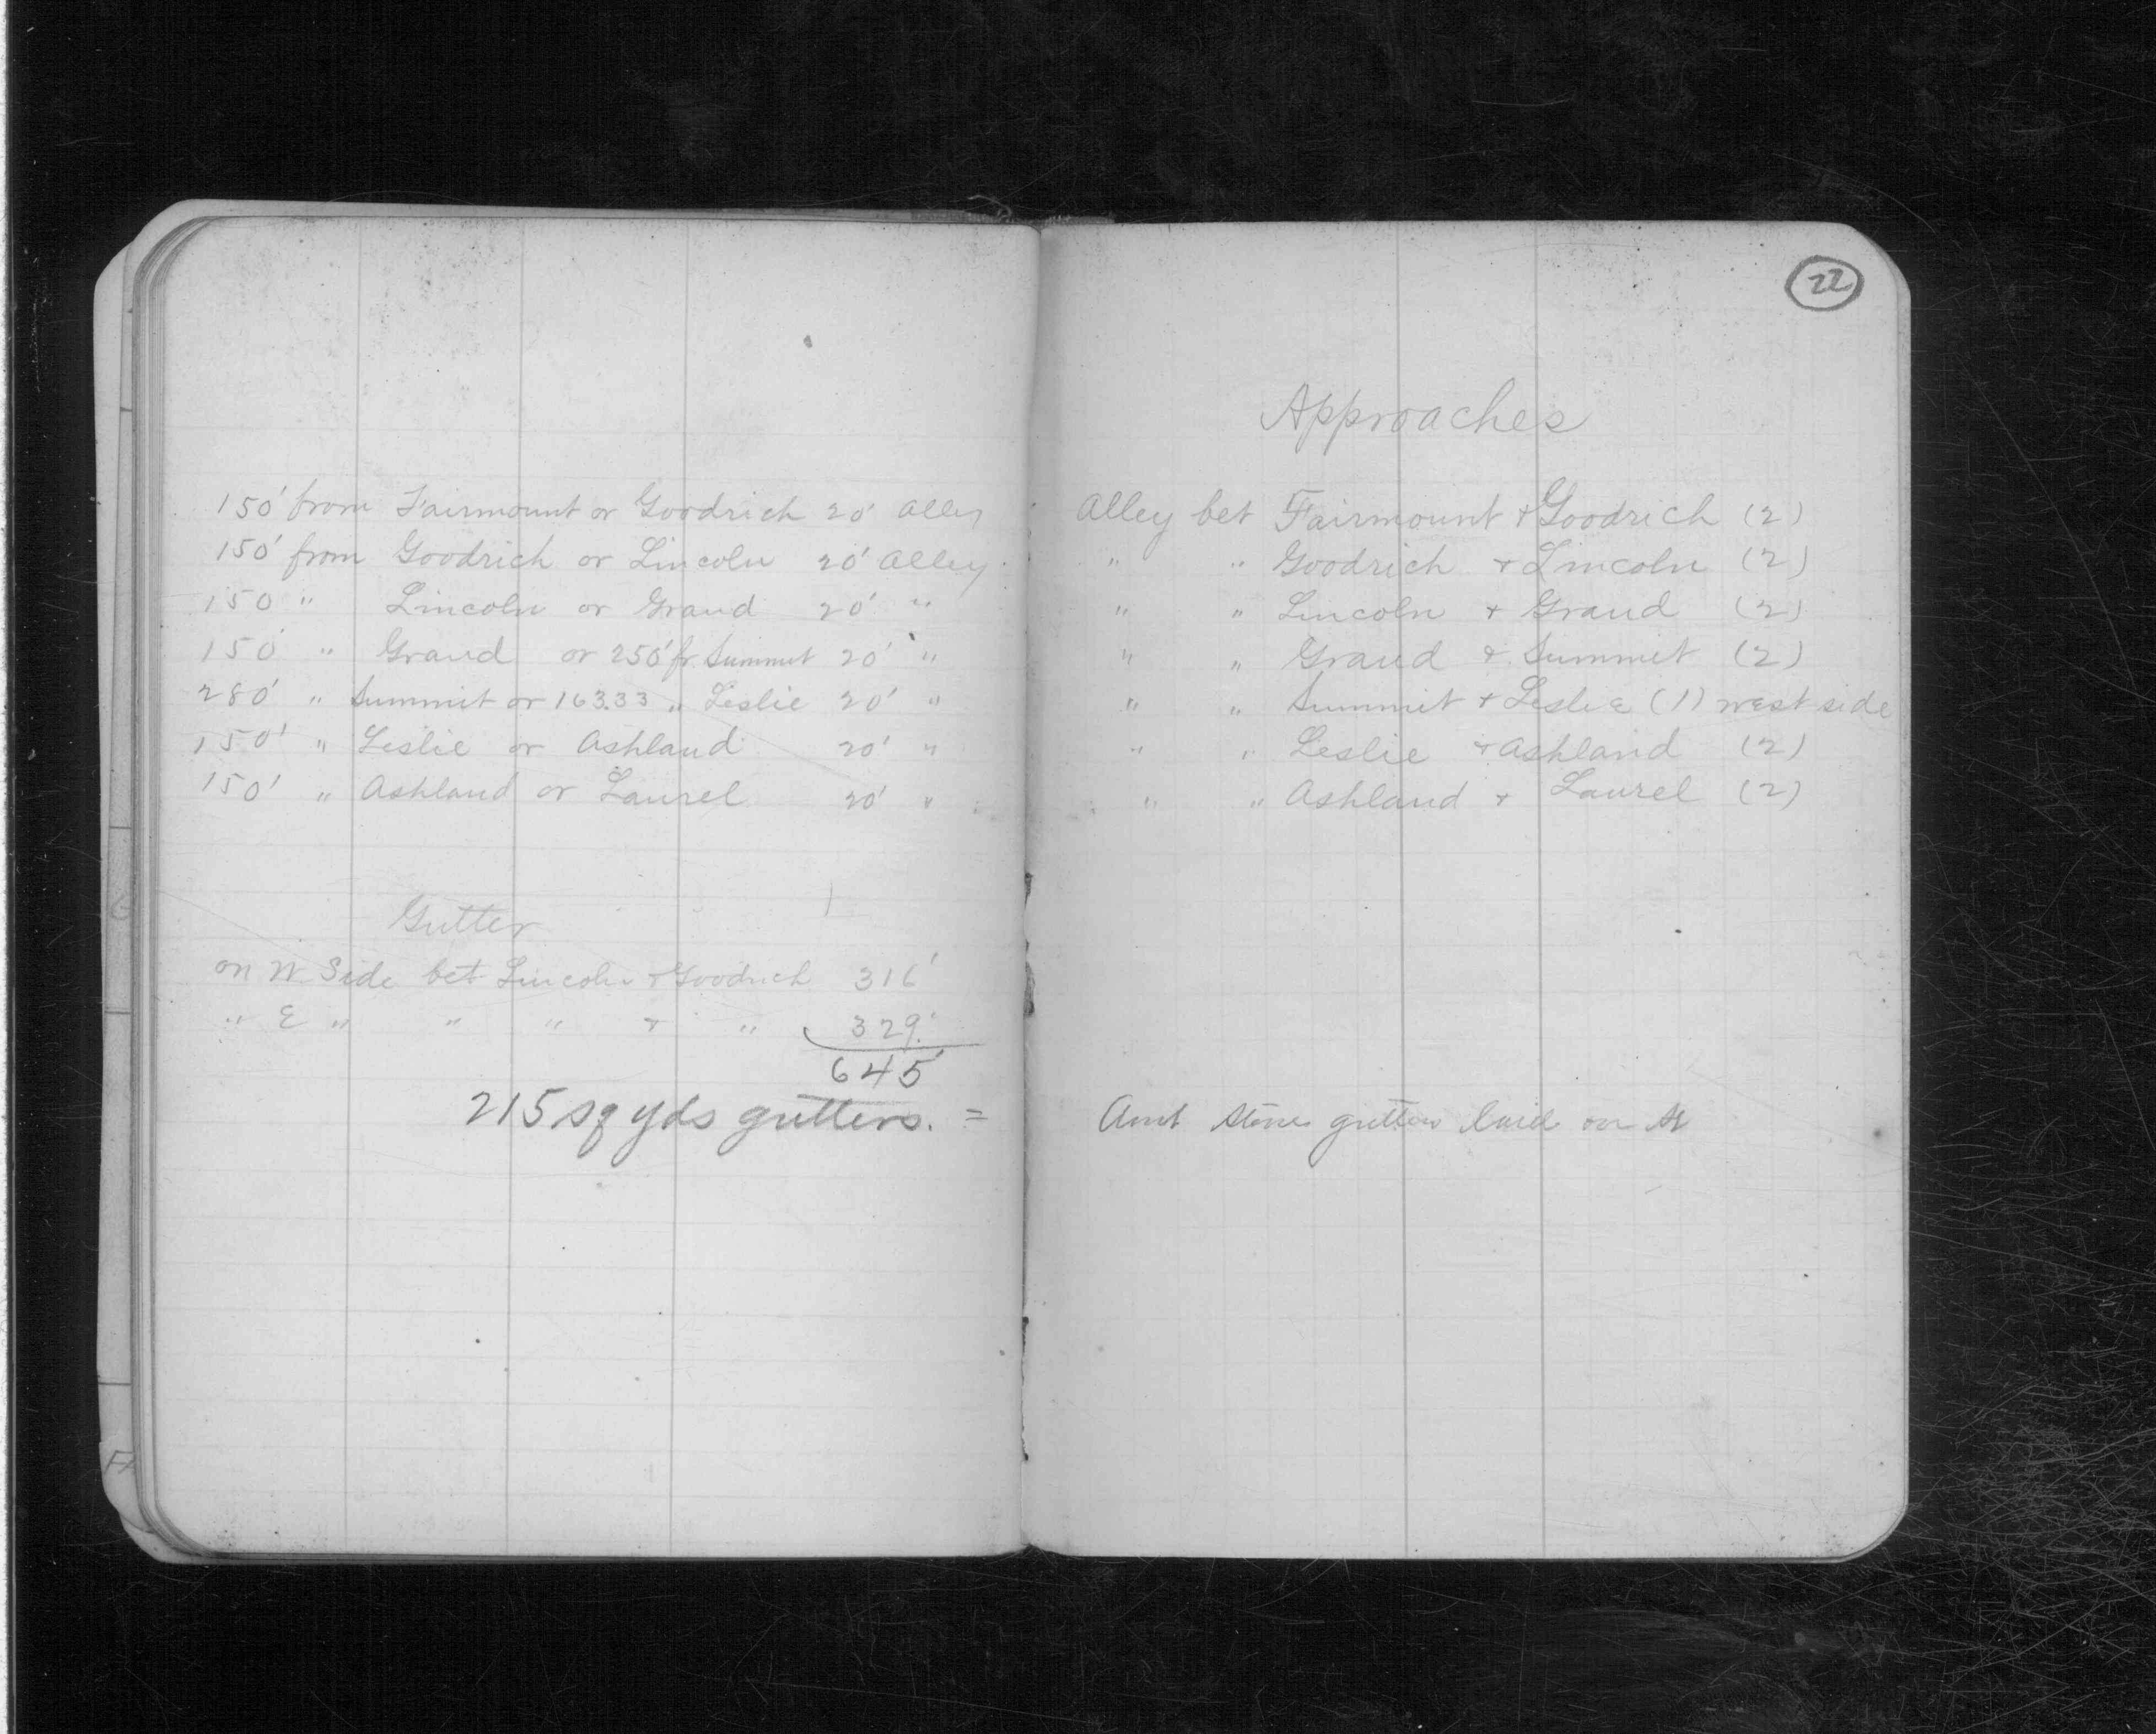 150' from Fairmount or Goodrich 20' alley
150' from Goodrich or Lincoln 20' alley
150 " Lincoln or Grand 20' "
150' " Grand or 250' fr. Summit 20' "
280' " Summit or 163.33 " Leslie 20' "
150' " Leslie or Ashland 20' "
150' " Ashland or Laurel 20' "
Gutter
on W Side bet Lincoln + Goodrich 316'
" E " " " + " 329'
645'
215 sq yds gutters. =
22
Approaches
Alley bet Fairmount + Goodrich (2)
" " Goodrich + Lincoln (2)
" " Lincoln + Grand (2)
" " Grand + Summit (2)
" " Summit + Leslie (1) west side
" " Leslie + Ashland (2)
" " Ashland + Laurel (2)
Amt Stone gutters laid on St